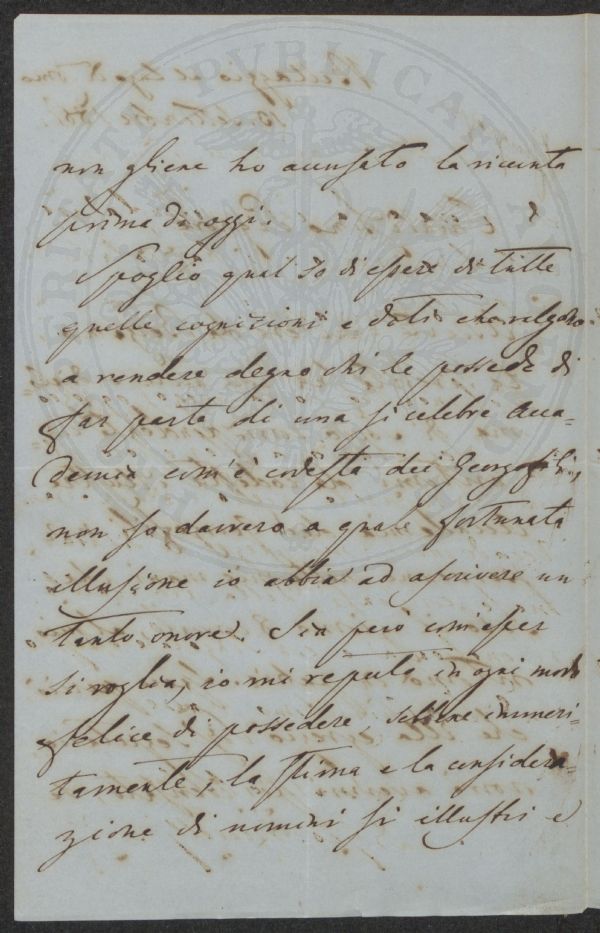 non gliene ho accusato la ricevuta
prima di oggi.
Spoglio qual so di essere di tutte
quelle cognizioni e doti che valgono
a rendere degno chi le possede di
far parte di una sì celebre Acca=
demia com'è codesta dei Georgofili,
non so davvero a quale fortunata
illusione io abbia ad ascrivere un
tanto onore. Sia però com'esser
si voglia, io mi reputo in ogni modo
felice di possedere sebbene immeri=
tamente, la stima e la considera=
zione di uomini sì illustri e